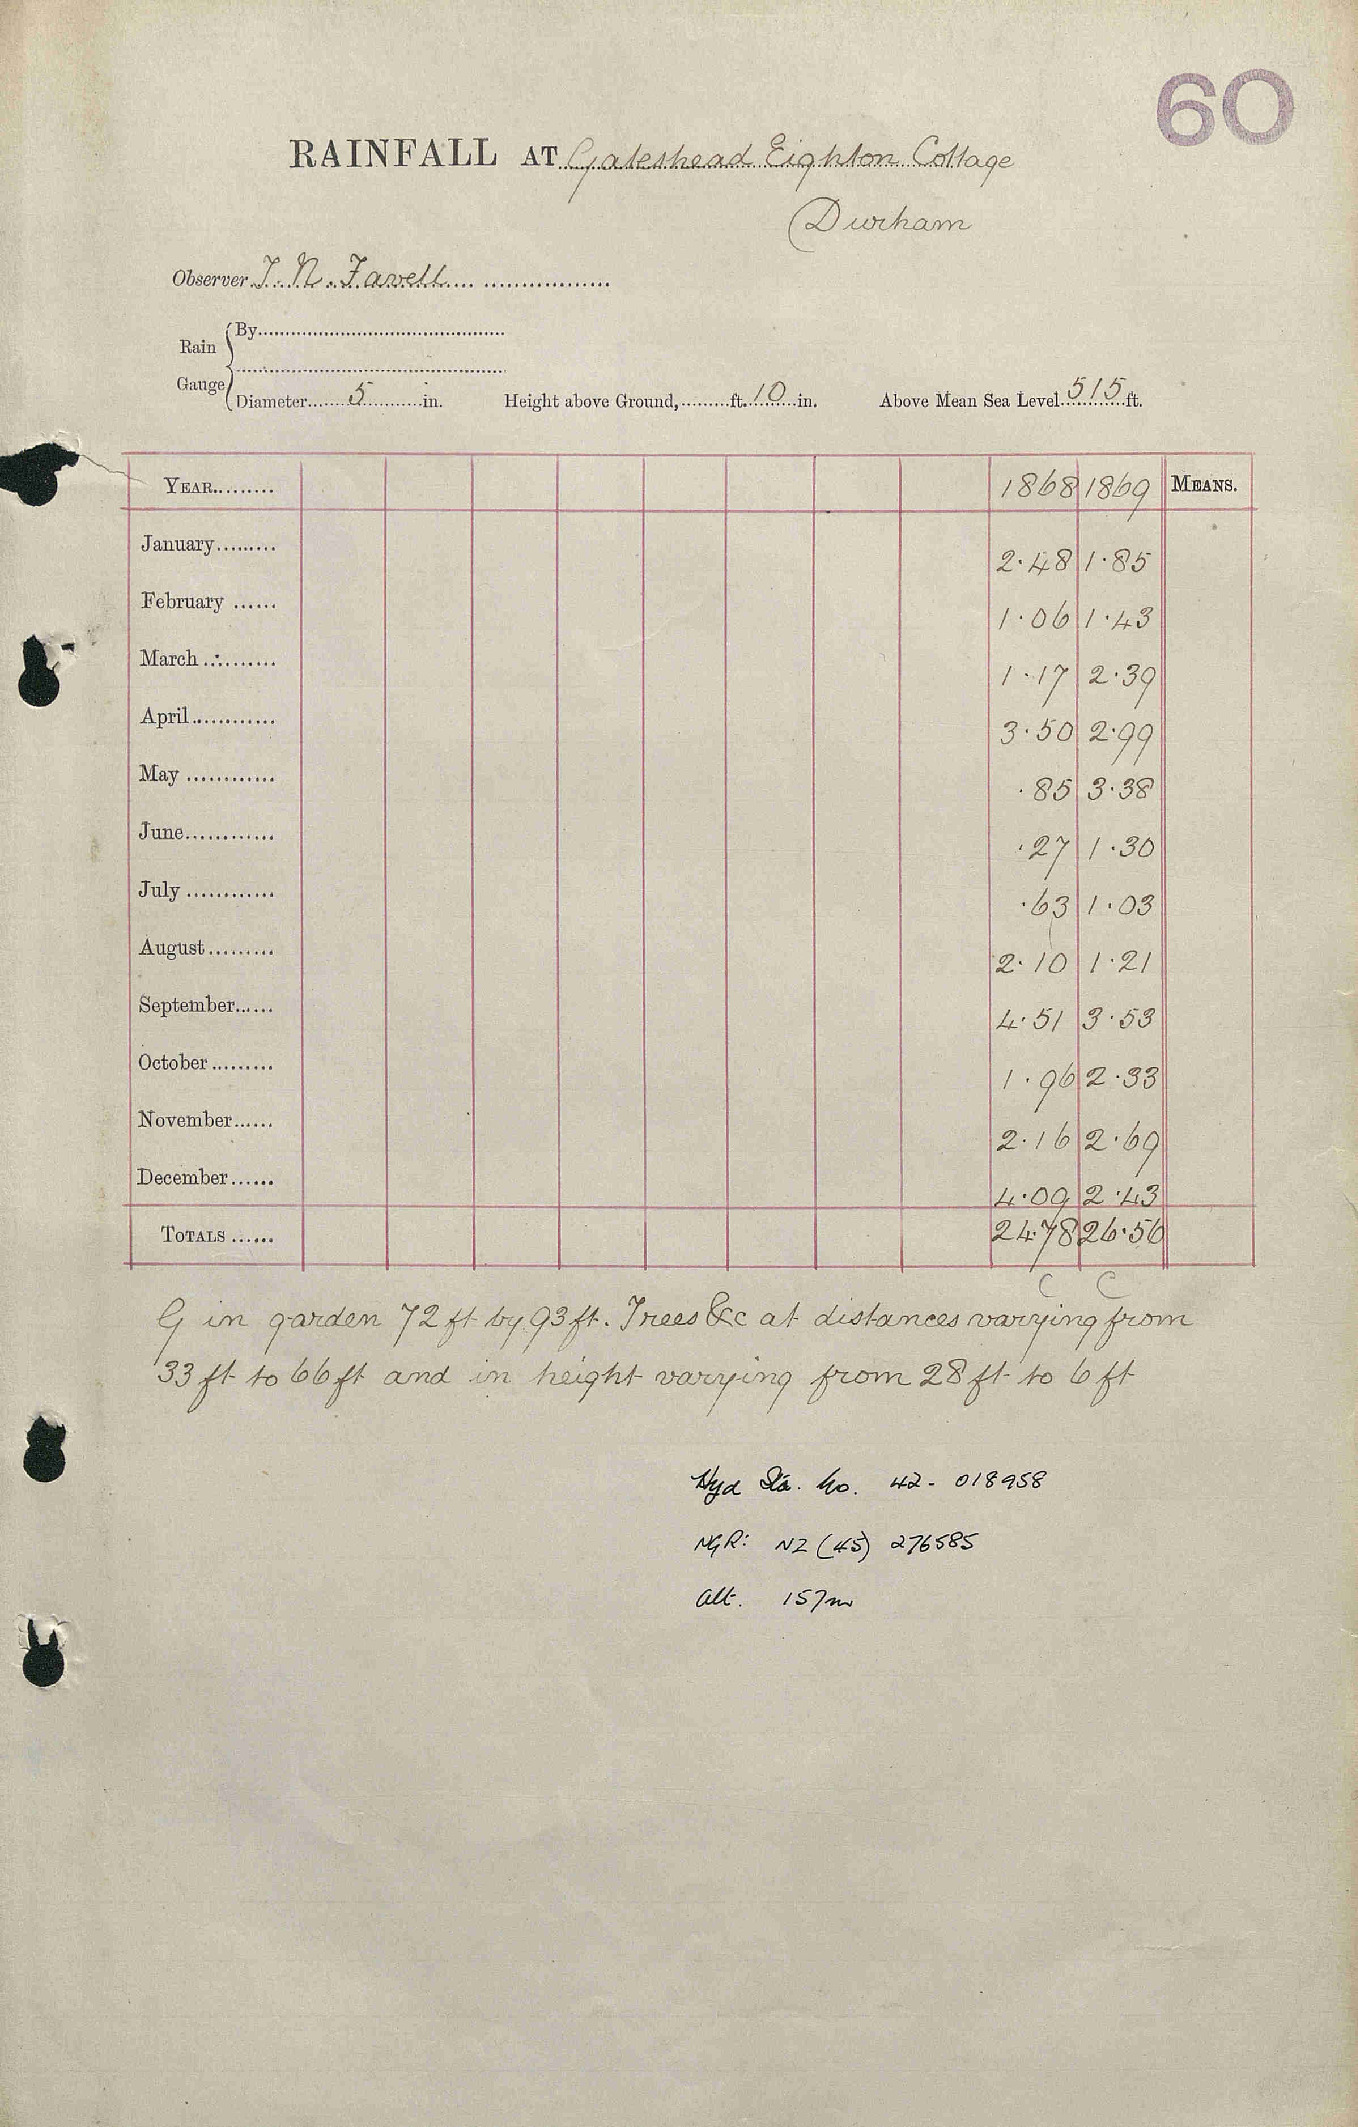 60
RAINFALL AT Gateshead Eighton Cottage
(Durham
Observer T. N. Favell
Rain Gauge { By
Diameter 5 in. Height above Ground, ft. 10 in. Above Mean Sea Level 515 ft.
YEAR 1868 1869 MEANS.
January 2.48 1.85
February 1.06 1.43
March 1.17 2.39
April 3.50 2.99
May .85 3.38
June .27 1.30
July .63 1.03
August 2.10 1.21
September 4.51 3.53
October 1.96 2.33
November 2.16 2.69
December 4.09 2.43
TOTALS 24.78 26.56
C C
G in garden 72 ft by 93 ft. Trees &c at distances varying from
33 ft to 66 ft and in height varying from 28 ft to 6 ft
Hyd Sta. No. 42 - 018958
NGR: NZ (45) 276585
Alt. 157m